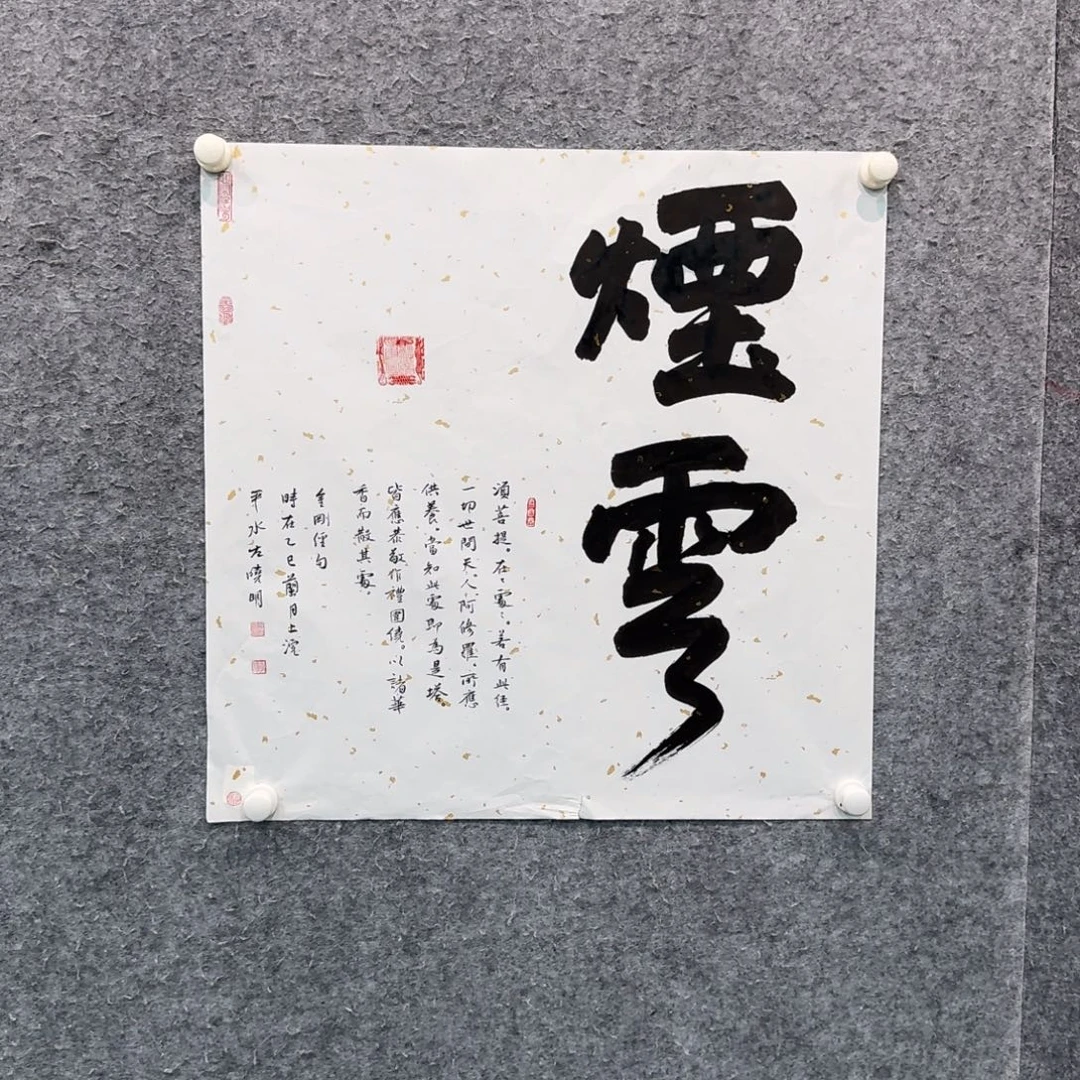 煙雲
須菩提。在〻處〻。若有此經。
一切世間天、人、阿修羅、所應
供養。當知此處即為是塔。
皆應恭敬作禮圍繞。以諸華
香而散其處。
金剛經句
時在乙巳蘭月上浣
平水左曉明